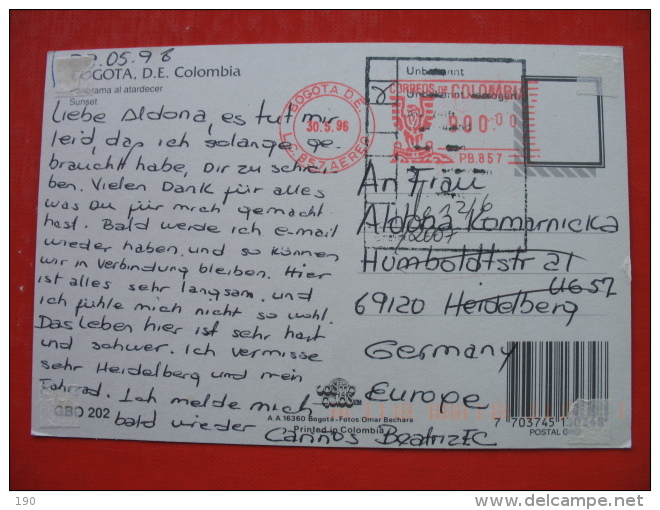 .05.96
BOGOTA, D.E. Colombia
Panorama al atardecer
Sunset
Liebe Aldona, es tut mir
leid, das ich solange ge-
braucht habe, Dir zu schrei-
ben. Vielen Dank für alles
was Du für mich gemacht
hast. Bald werde ich e-mail
wieder haben, und so können
wir in Verbindung bleiben. Hier
ist alles sehr langsam, und
ich fühle mich nicht so wohl.
Das Leben hier ist sehr hart
und schwer. Ich vermisse
sehr Heidelberg und mein
Fahrrad. Ich melde mich
bald wieder
Cariños Beatriz EC
GBO 202
A A 16360 Bogotá - Fotos Omar Bechara
Printed in Colombia
BOGOTA D.E.
30.5.96
L.C. 857 AEREO
Unbekannt
Unbekannt verzogen
CORREOS DE COLOMBIA
900.00
PB.857
An Frau
Aldona Komarnicka
Humboldtstr 21
69120 Heidelberg
Germany
Europe
7 703745 150248
POSTAL GBO
190
delcampe.net